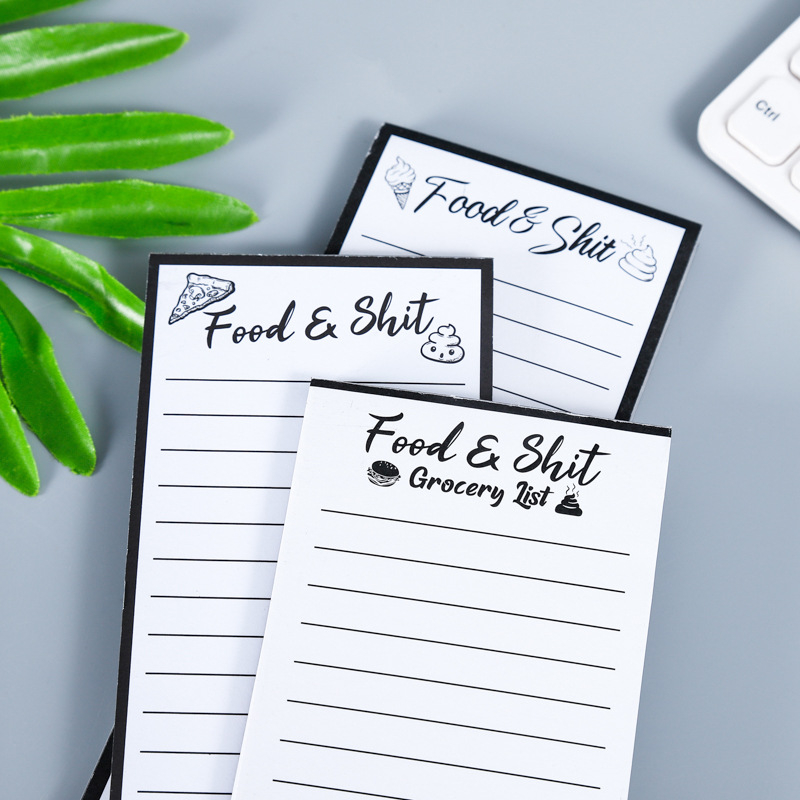 Ctrl
Food & Shit
Food & Shit
Food & Shit
Grocery List